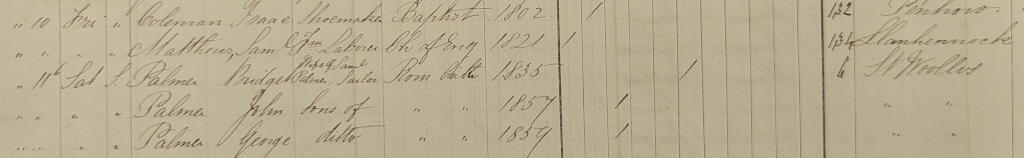 " 10 Fri " Coleman Isaac Shoemaker Baptist 1802 1 132 Penhow.
" " " " Matthews, Saml Fm Laborer Ch of Eng 1821 1 134 Llanhennock
" 11th Sat S. Palmer Bridget Wife of Saml Palmer, Tailor Rom Cath 1835 1 6 St Woollos
" " " Palmer John Sons of " " 1857 1 " "
" " " Palmer George ditto " " 1859 1 " "